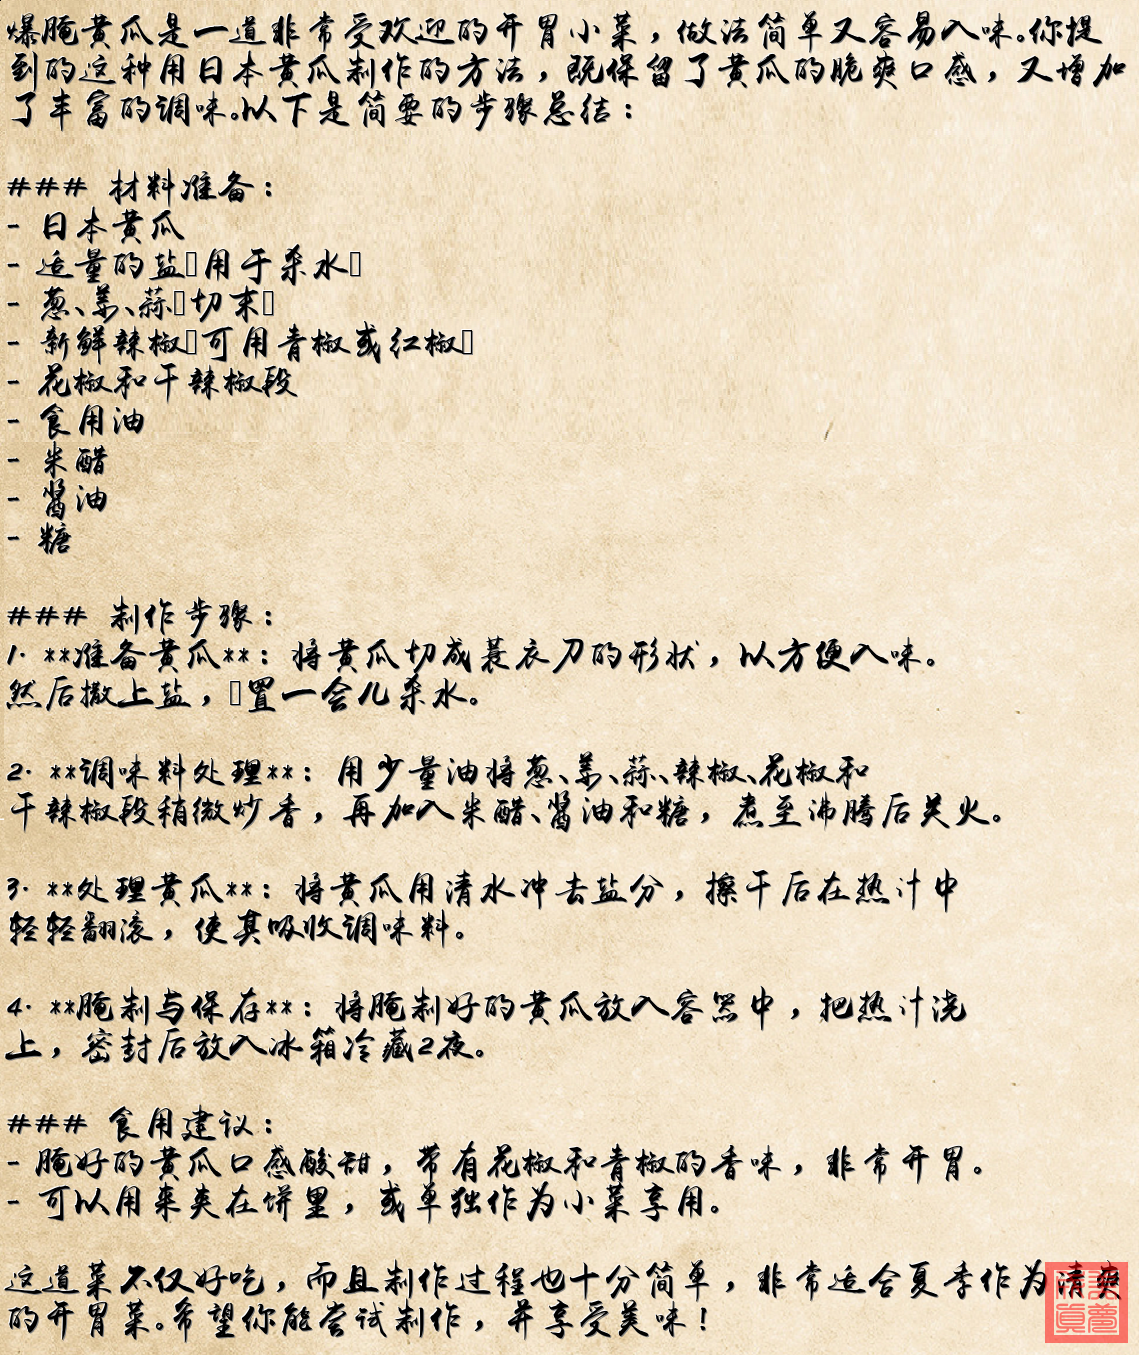 爆腌黄瓜是一道非常受欢迎的开胃小菜，做法简单又容易入味。你提
到的这种用日本黄瓜制作的方法，既保留了黄瓜的脆爽口感，又增加
了丰富的调味。以下是简要的步骤总结：
### 材料准备：
- 日本黄瓜
- 适量的盐□用于杀水□
- 葱、姜、蒜□切末□
- 新鲜辣椒□可用青椒或红椒□
- 花椒和干辣椒段
- 食用油
- 米醋
- 酱油
- 糖
### 制作步骤：
1. **准备黄瓜**：将黄瓜切成蓑衣刀的形状，以方便入味。
然后撒上盐，□置一会儿杀水。
2. **调味料处理**：用少量油将葱、姜、蒜、辣椒、花椒和
干辣椒段稍微炒香，再加入米醋、酱油和糖，煮至沸腾后关火。
3. **处理黄瓜**：将黄瓜用清水冲去盐分，擦干后在热汁中
轻轻翻滚，使其吸收调味料。
4. **腌制与保存**：将腌制好的黄瓜放入容器中，把热汁浇
上，密封后放入冰箱冷藏2夜。
### 食用建议：
- 腌好的黄瓜口感酸甜，带有花椒和青椒的香味，非常开胃。
- 可以用来夹在饼里，或单独作为小菜享用。
这道菜不仅好吃，而且制作过程也十分简单，非常适合夏季作为清爽
的开胃菜。希望你能尝试制作，并享受美味！